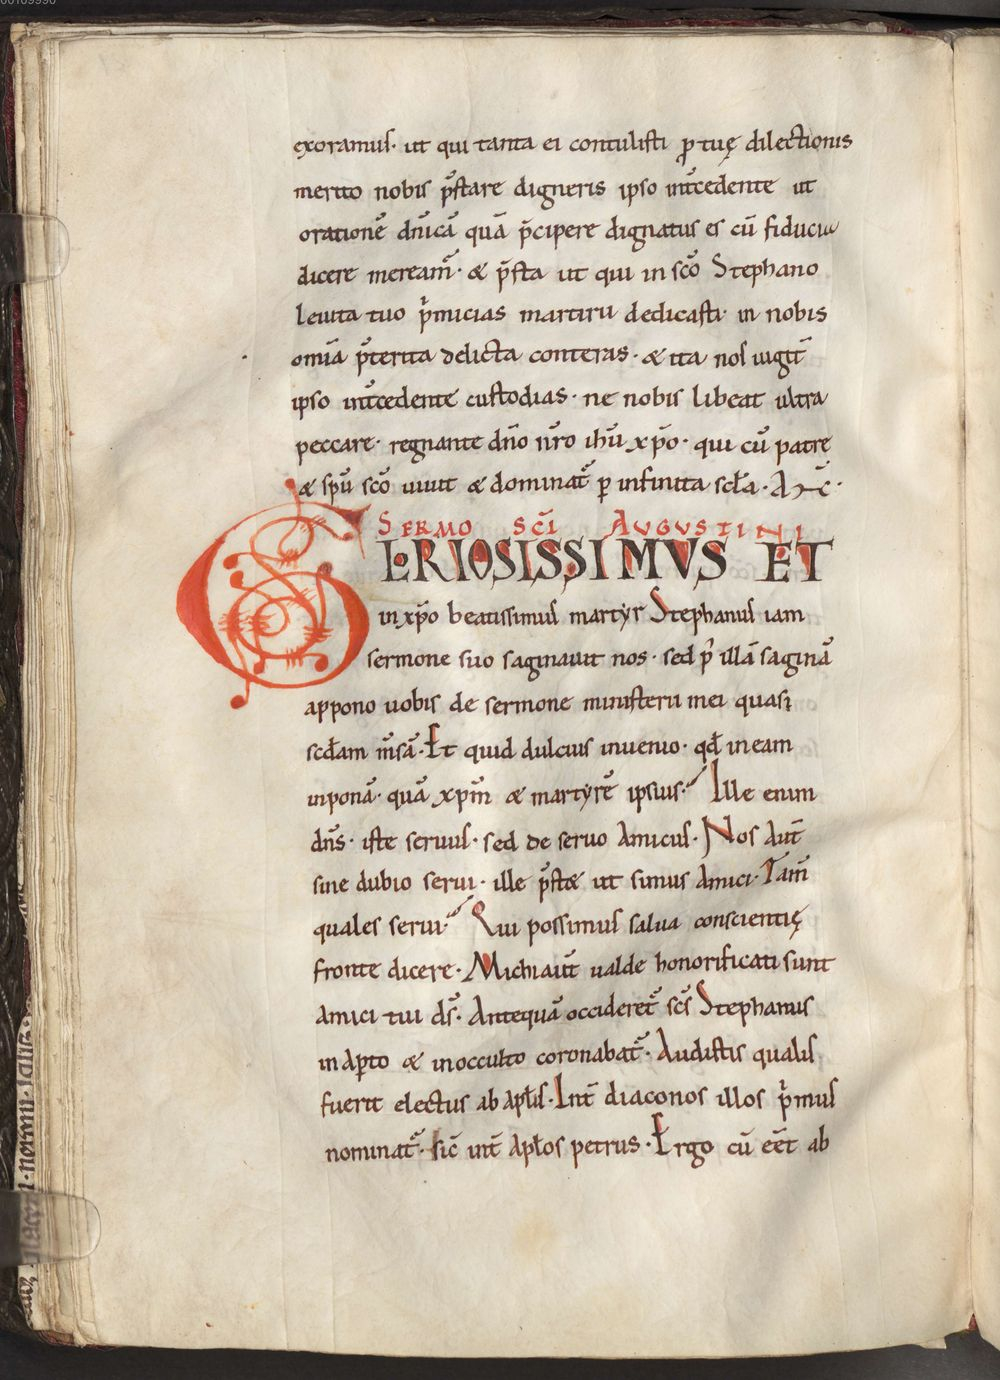 exoramus· ut qui tanta ei contulisti ꝓ tuę dilectionis
merito nobis p̄stare digneris ipso int̄cedente ut
orationē dn̄icā quā p̄cipere dignatus es cū fiducia
dicere meream̄· & p̄sta ut qui in sc̄o Stephano
leuita tuo p̄micias martirii dedicasti· in nobis
om̄ia p̄terita delicta conteras· & ita nos iugit̄
ipso int̄cedente custodias· ne nobis libeat ultra
peccare· regnante dn̄o nr̄o ihū xp̄o· qui cū patre
& spū sc̄o uiuit & dominat̄ ꝑ infinita scła·
SERMO SC̄I AUGUSTINI
GLORIOSISSIMVS ET
in xp̄o beatissimus martyr Stephanus iam
sermone suo saginauit nos· sed p̄ illā saginā
appono uobis de sermone ministerii mei quasi
scđam m̄sā· Et quid dulcius inuenio· qđ in eam
inponā· quā xpm̄ & martyrē ipsius· Ille enim
dn̄s· iste seruus· sed de seruo Amicus· Nos Aut̄
sine dubio serui· ille p̄st& ut simus Amici· Tam̄
quales serui· Qui possimus salua conscientię
fronte dicere· Michi aut̄ ualde honorificati sunt
Amici tui ds̄· Antequā occideret̄ sc̄s Stephanus
in Aꝑto & in occulto coronabat̄· Audistis qualis
fuerit electus ab apłis· Int̄ diaconos illos p̄mus
nominat̄· sic̄ int̄ Apłos petrus· Ergo cū eēt ab